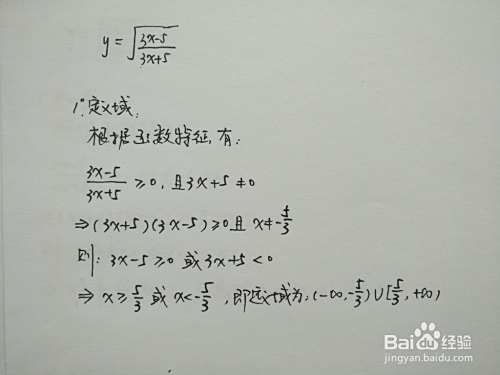 y = √((3x-5)/(3x+5))
1°.定义域:
根据函数特征,有:
(3x-5)/(3x+5) ≥0, 且3x+5≠0
⇒(3x+5)(3x-5)≥0且x≠-5/3
则: 3x-5≥0 或 3x+5<0
⇒ x≥5/3 或 x<-5/3, 即定义域为: (-∞,-5/3)∪[5/3,+∞)
Baidu 经验
jingyan.baidu.com